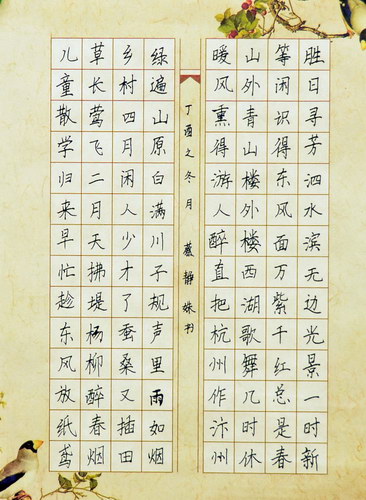 胜日寻芳泗水滨无边光景一时新
等闲识得东风面万紫千红总是春
山外青山楼外楼西湖歌舞几时休
暖风熏得游人醉直把杭州作汴州
丁酉之冬月 静姝书
绿遍山原白满川子规声里雨如烟
乡村四月闲人少才了蚕桑又插田
草长莺飞二月天拂堤杨柳醉春烟
儿童散学归来早忙趁东风放纸鸢